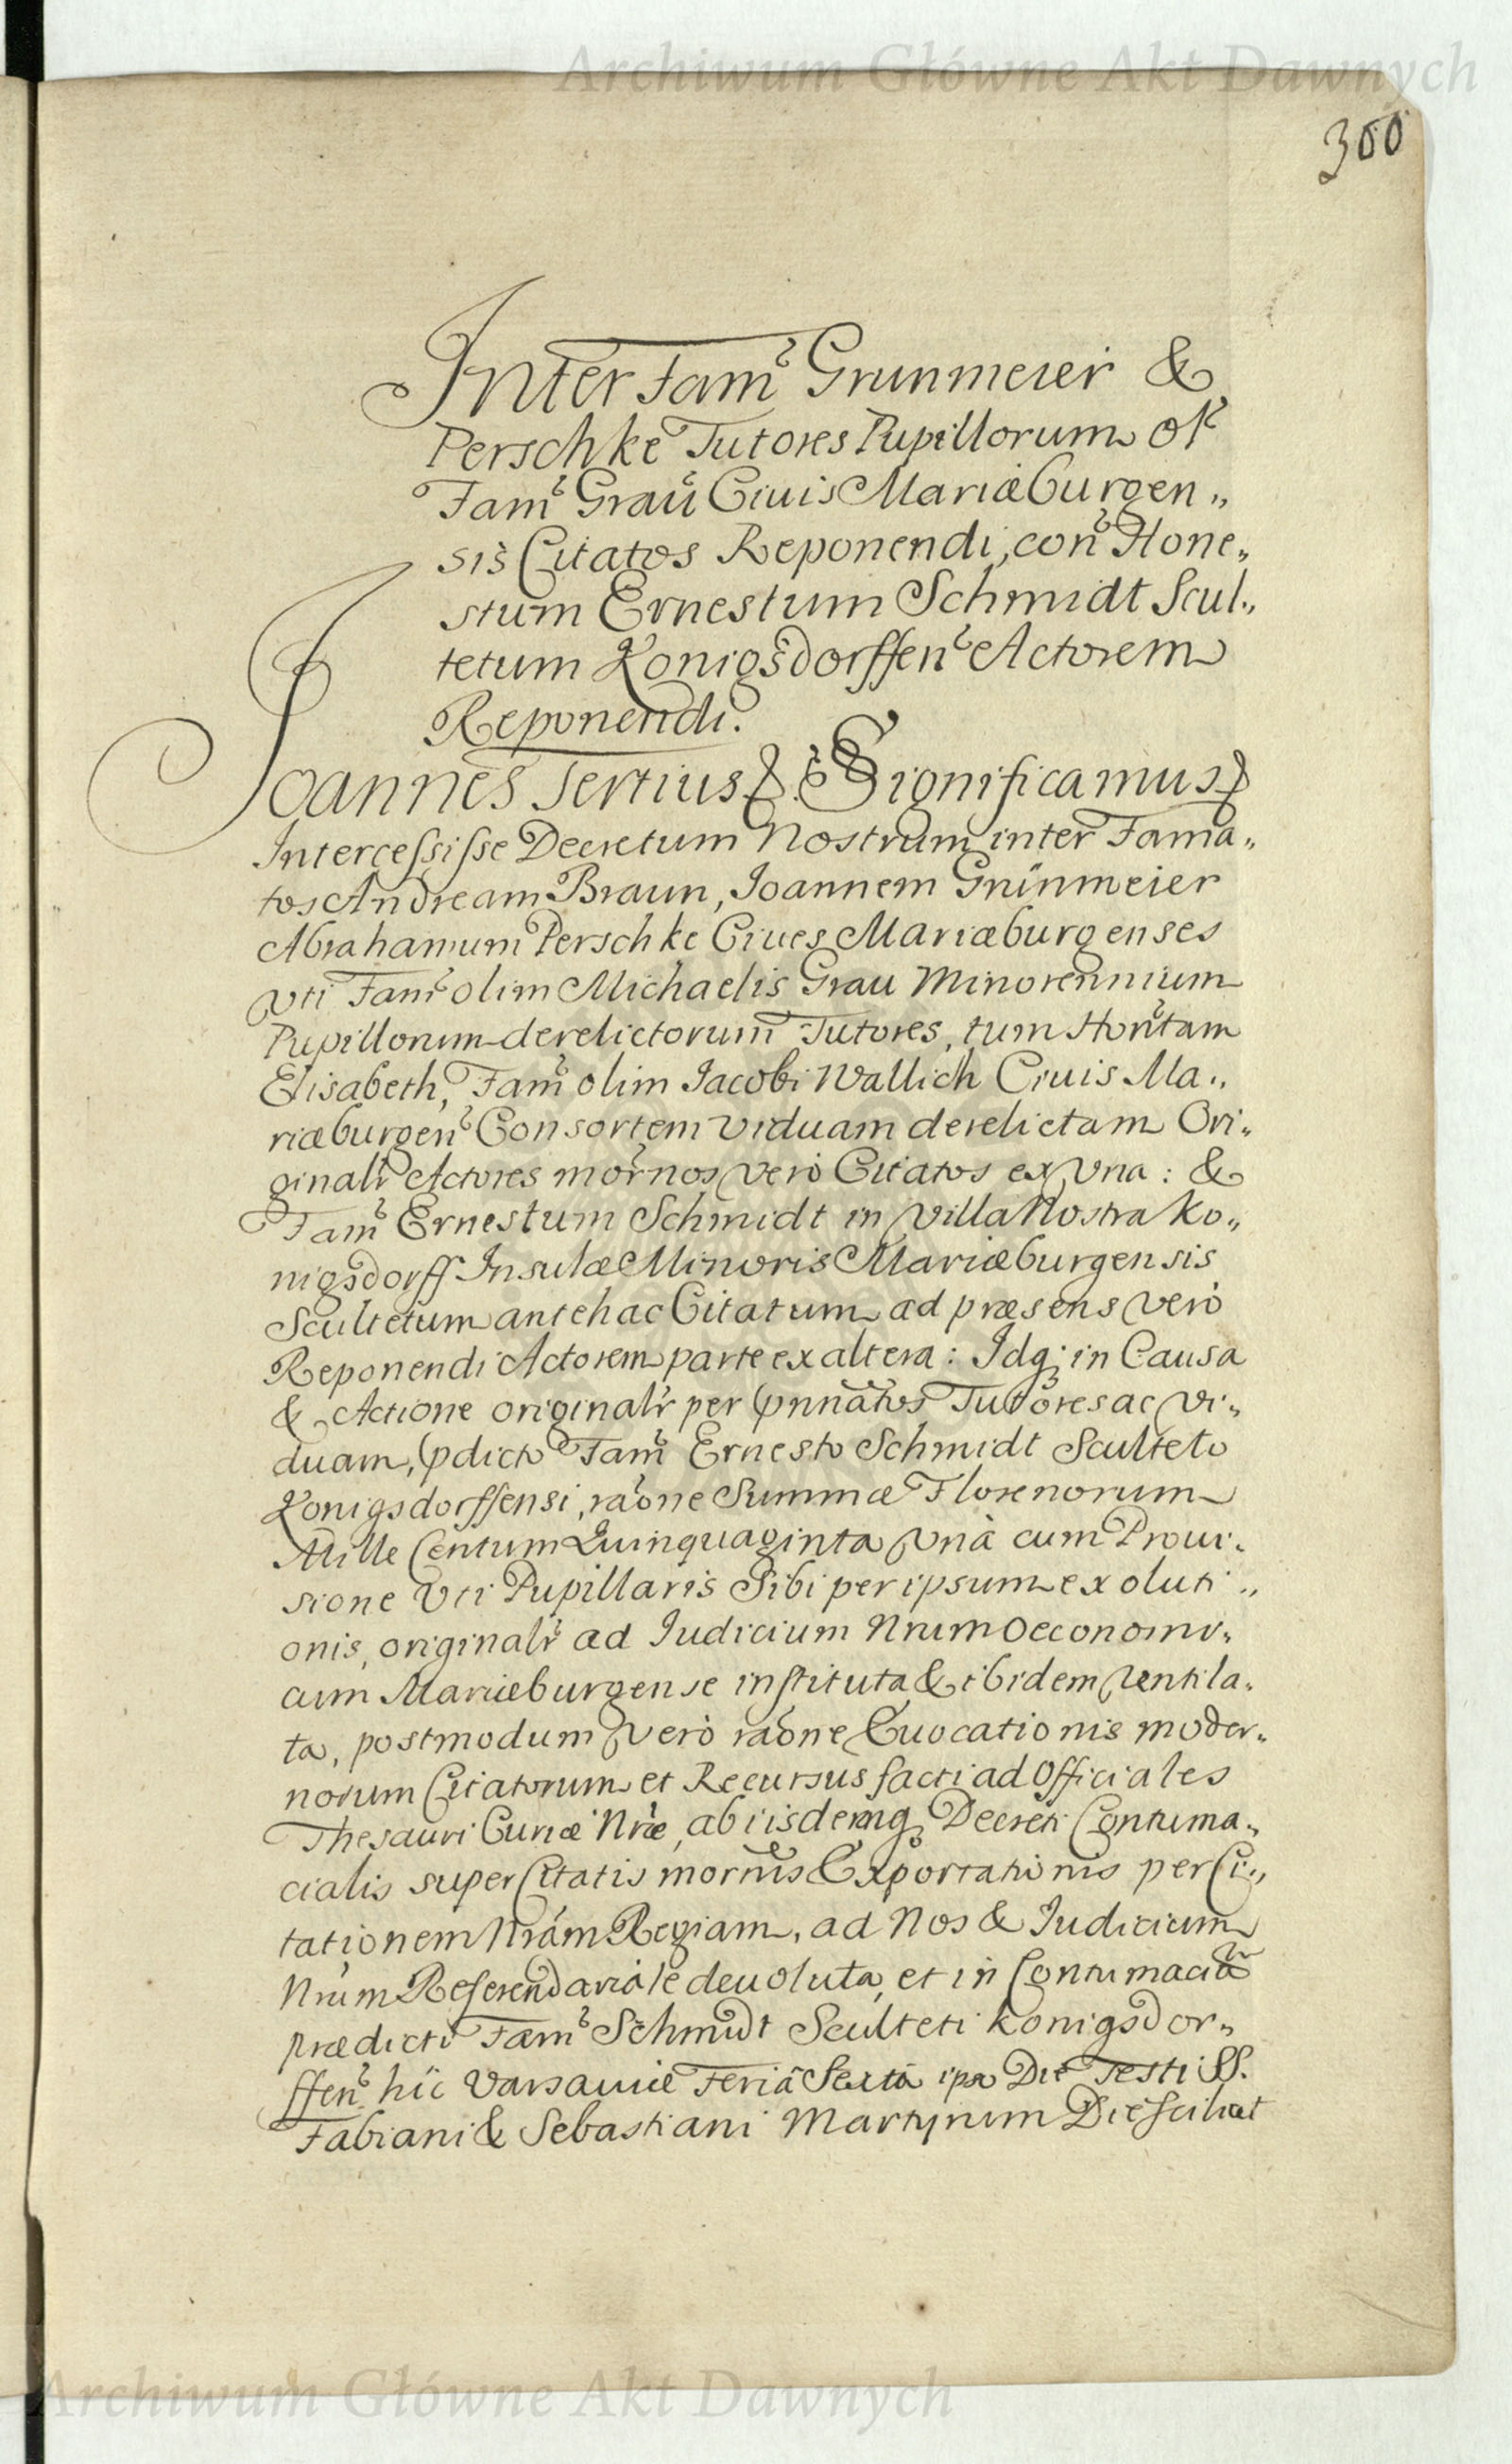 Archiwum Główne Akt Dawnych
300
Inter Fam̃ Grunmeier &
Perschke Tutores Pupillorum ol̃
Fam̃ Graũ Ciuis Mariæburgen„
sis Citatos Reponendi, con̄ Hone„
stum Ernestum Schmidt Scul„
tetum Konigsdorffen̄ Actorem
Reponendi.
Joannes Tertius &. Significamus &
Intercessisse Decretum Nostrum inter Fama„
tos Andream Braun, Joannem Grünmeier
Abrahamum Perschke Ciues Mariæburgenses
Vti Fam̃ olim Michaelis Grau Minorennium
Pupillorum derelictorum Tutores, tum Hon̄tam
Elisabeth, Fam̃ olim Jacobi Wallich Ciuis Ma„
riæburgen̄ Consortem Viduam derelictam Ori„
ginalr̃ Actores mor̃nos Vero Citatos ex Vna: &
Fam̃ Ernestum Schmidt in Villa Nostra Ko„
nigsdorff Insulæ Minoris Mariæburgensis
Scultetum antehac Citatum ad præsens Verò
Reponendi Actorem parte ex altera: Idq; in Causa
& Actione originalr̃ per p̄nnãtos Tutores ac Vi„
duam, p̄dicto Fam̃ Ernesto Schmidt Sculteto
Konigsdorffensi, raõne Summæ Florenorum
Mille Centum Quinquaginta Vnà cum Proui„
sione Vti Pupillaris Sibi per ipsum exoluti„
onis, originalr̃ ad Iudicium Nrum Oeconomi„
cum Mariæburgense instituta & ibidem Ventila„
ta, postmodum Verò raõne Euocationis moder„
norum Citatorum et Recursus facti ad Officiales
Thesauri Curiæ Nræ, ab iisdemq; Decreti Contuma„
cialis super Citatis mor̃nis Exportationis per Ci„
tationem Nram Regiam, ad Nos & Iudicium
Nrum Referendariale deuoluta, et in Contumaciã
prædicti Fam̃ Schmidt Sculteti Konigsdor„
ffen̄ hic Varsauiæ Feriâ Sextâ ipso Die Festi SS.
Fabiani & Sebastiani Martyrum Die scilicet
Archiwum Główne Akt Dawnych